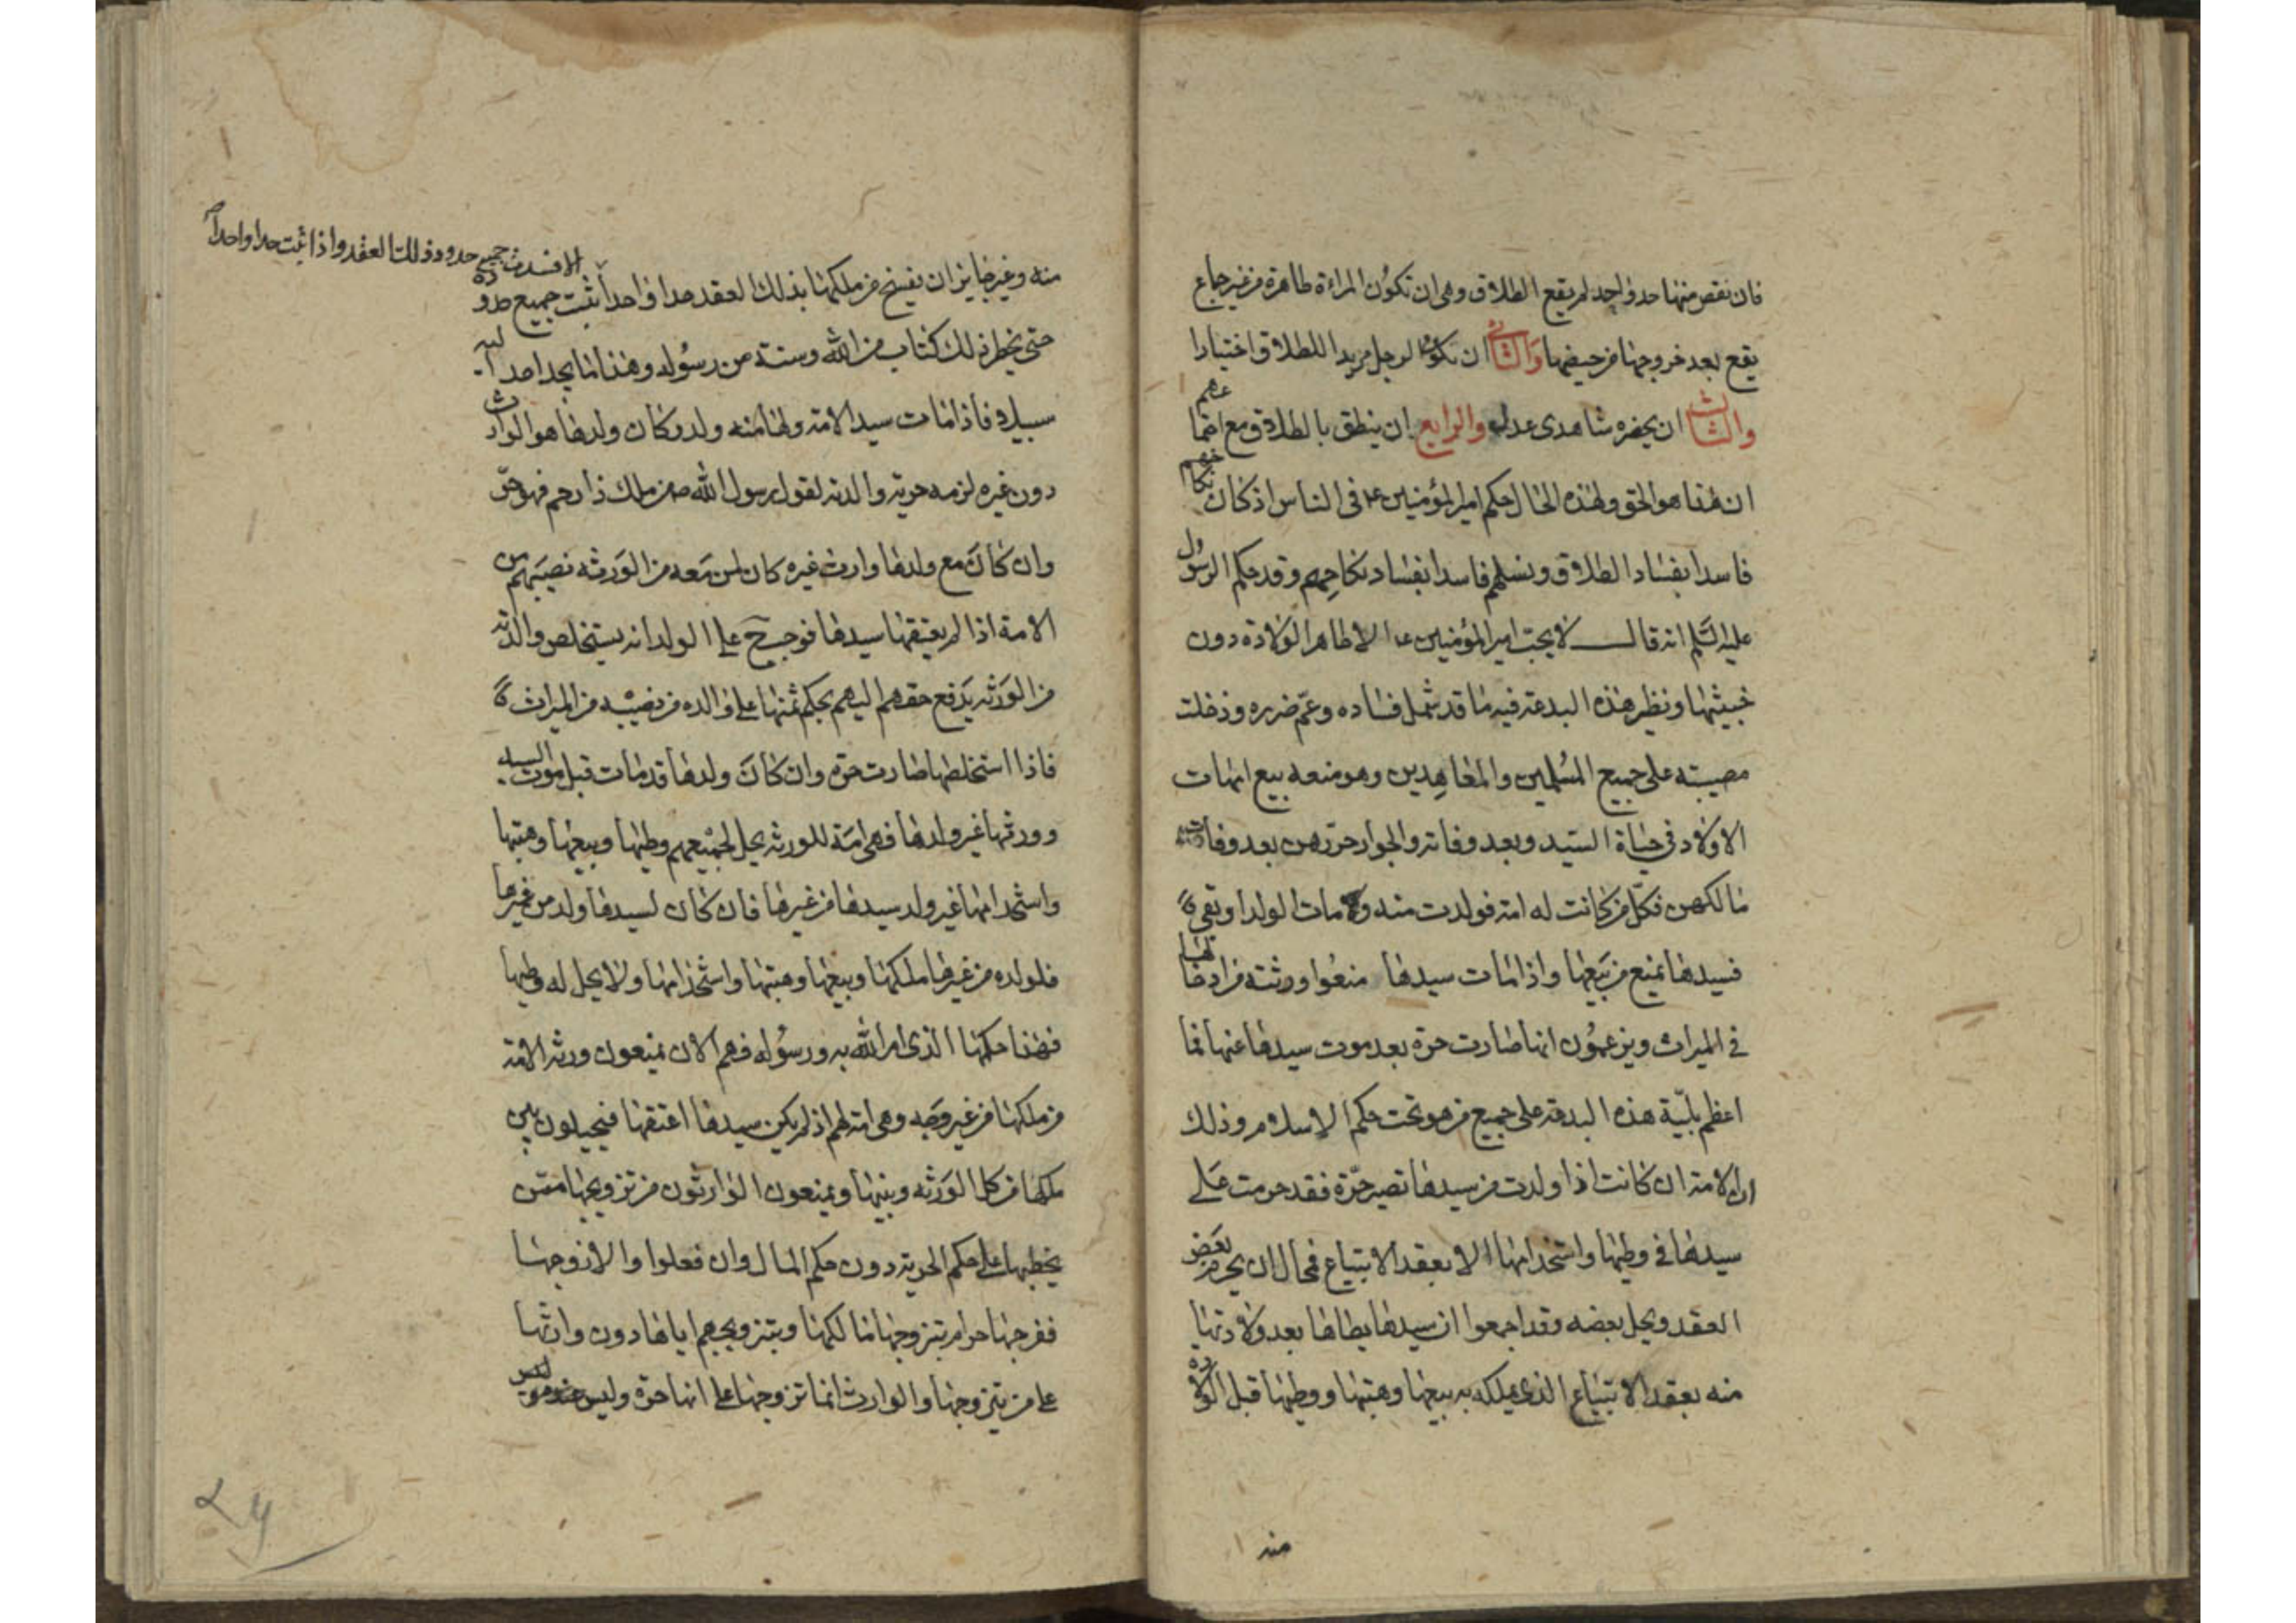 فان نقص منها حد واحد لم يقع الطلاق وهى ان تكون المراءة طاهرة من غير جماع
يقع بعد خروجها من حيضها والثانى ان يكون الرجل مريدا للطلاق اختيارا
والثالث ان يحضره شاهدى عدل والرابع ان ينطق بالطلاق مع
ان هذا هو الحق ولهذه الحال حكم امير المؤمنين ع فى الناس اذ كان نكاحهم
فاسدا بفساد الطلاق ونسلهم فاسدا بفساد نكاحهم وقد حكم الرسول
عليه السلم انه قال لا يحب امير المؤمنين ع الا طاهر الولادة دون
خبيثها ونظير هذه البدعة فيه ما قد شمل فساده وعم ضرره ودخلت
مصيبته على جميع المسلمين والمعاهدين وهو منعه بيع امهات
الاولاد فى حياة السيد وبعد وفاته والجوار حررهن بعد وفات
مالكهن فكل من كانت له امة فولدت منه و مات الولد او بقى
فسيدها يمنع من بيعها واذا مات سيدها منعوا ورثته من ادخالها
فى الميراث ويزعمون انها صارت حرة بعد موت سيدها عنها فما
اعظم بلية هذه البدعة على جميع من هو تحت حكم الاسلام وذلك
ان الامة ان كانت اذا ولدت من سيدها تصير حرة فقد حرمت على
سيدها فى وطيها واستخدامها الا بعقد الابتياع فمحال ان يحرم بعض
العقد ويحل بعضه وقد اجمعوا ان سيدها يطاها بعد ولادتها
منه بعقد الابتياع الذى يملكه به بيعها وهبتها ووطيها قبل الولادة
منه
الا فسدت جميع حدود ذلك العقد واذا ثبت حدا واحدا
منه وغير جايز ان يفسخ من ملكها بذلك العقد حدا واحدا ثبت جميع حدوده
حتى يحظر ذلك كتاب من الله وسنة من رسوله وهذا ما لم يجد احد اليه
سبيلا فاذا مات سيد الامة ولها منه ولد وكان ولدها هو الوارث
دون غيره لزمه حرية والدته لقول رسول الله ص من ملك ذا رحم فهو حر
وان كان مع ولدها وارث غيره كان لمن معه من الورثه نصيبهم من
الامة اذا لم يعتقها سيدها فوجب ح على الولد انه يستخلص والدته
من الورثة يدفع حقهم اليهم بحكم ثمنها على والده من نصيبه من الميراث
فاذا استخلصها صارت حرة وان كان ولدها قد مات قبل موت السيد
وورثها غير ولدها فهى امة للورثه يحل لجميعهم وطيها وبيعها وهبتها
واستخدامها غير ولد سيدها من غيرها فان كان لسيدها ولد من غيرها
فلولده من غيرها ملكها وبيعها وهبتها واستخدامها ولا يحل له وطيها
فهذا حكمها الذى امر الله به ورسوله فهم الان يمنعون ورثه الامة
من ملكها من غير وجه وهى امة لهم اذ لم يكن سيدها اعتقها فيحيلون بين
ملكها من كل الورثه وبينها ويمنعون الوارثون من تزويجها ممن
يخطبها على حكم الحرية دون حكم المال وان فعلوا والا زوجها
ففرجها حرام بتزوجها مالكها وبتزويجهم اياها دون وارثها
على من يتزوجها والوارث انما تزوجها على انها حرة وليس
٢٤